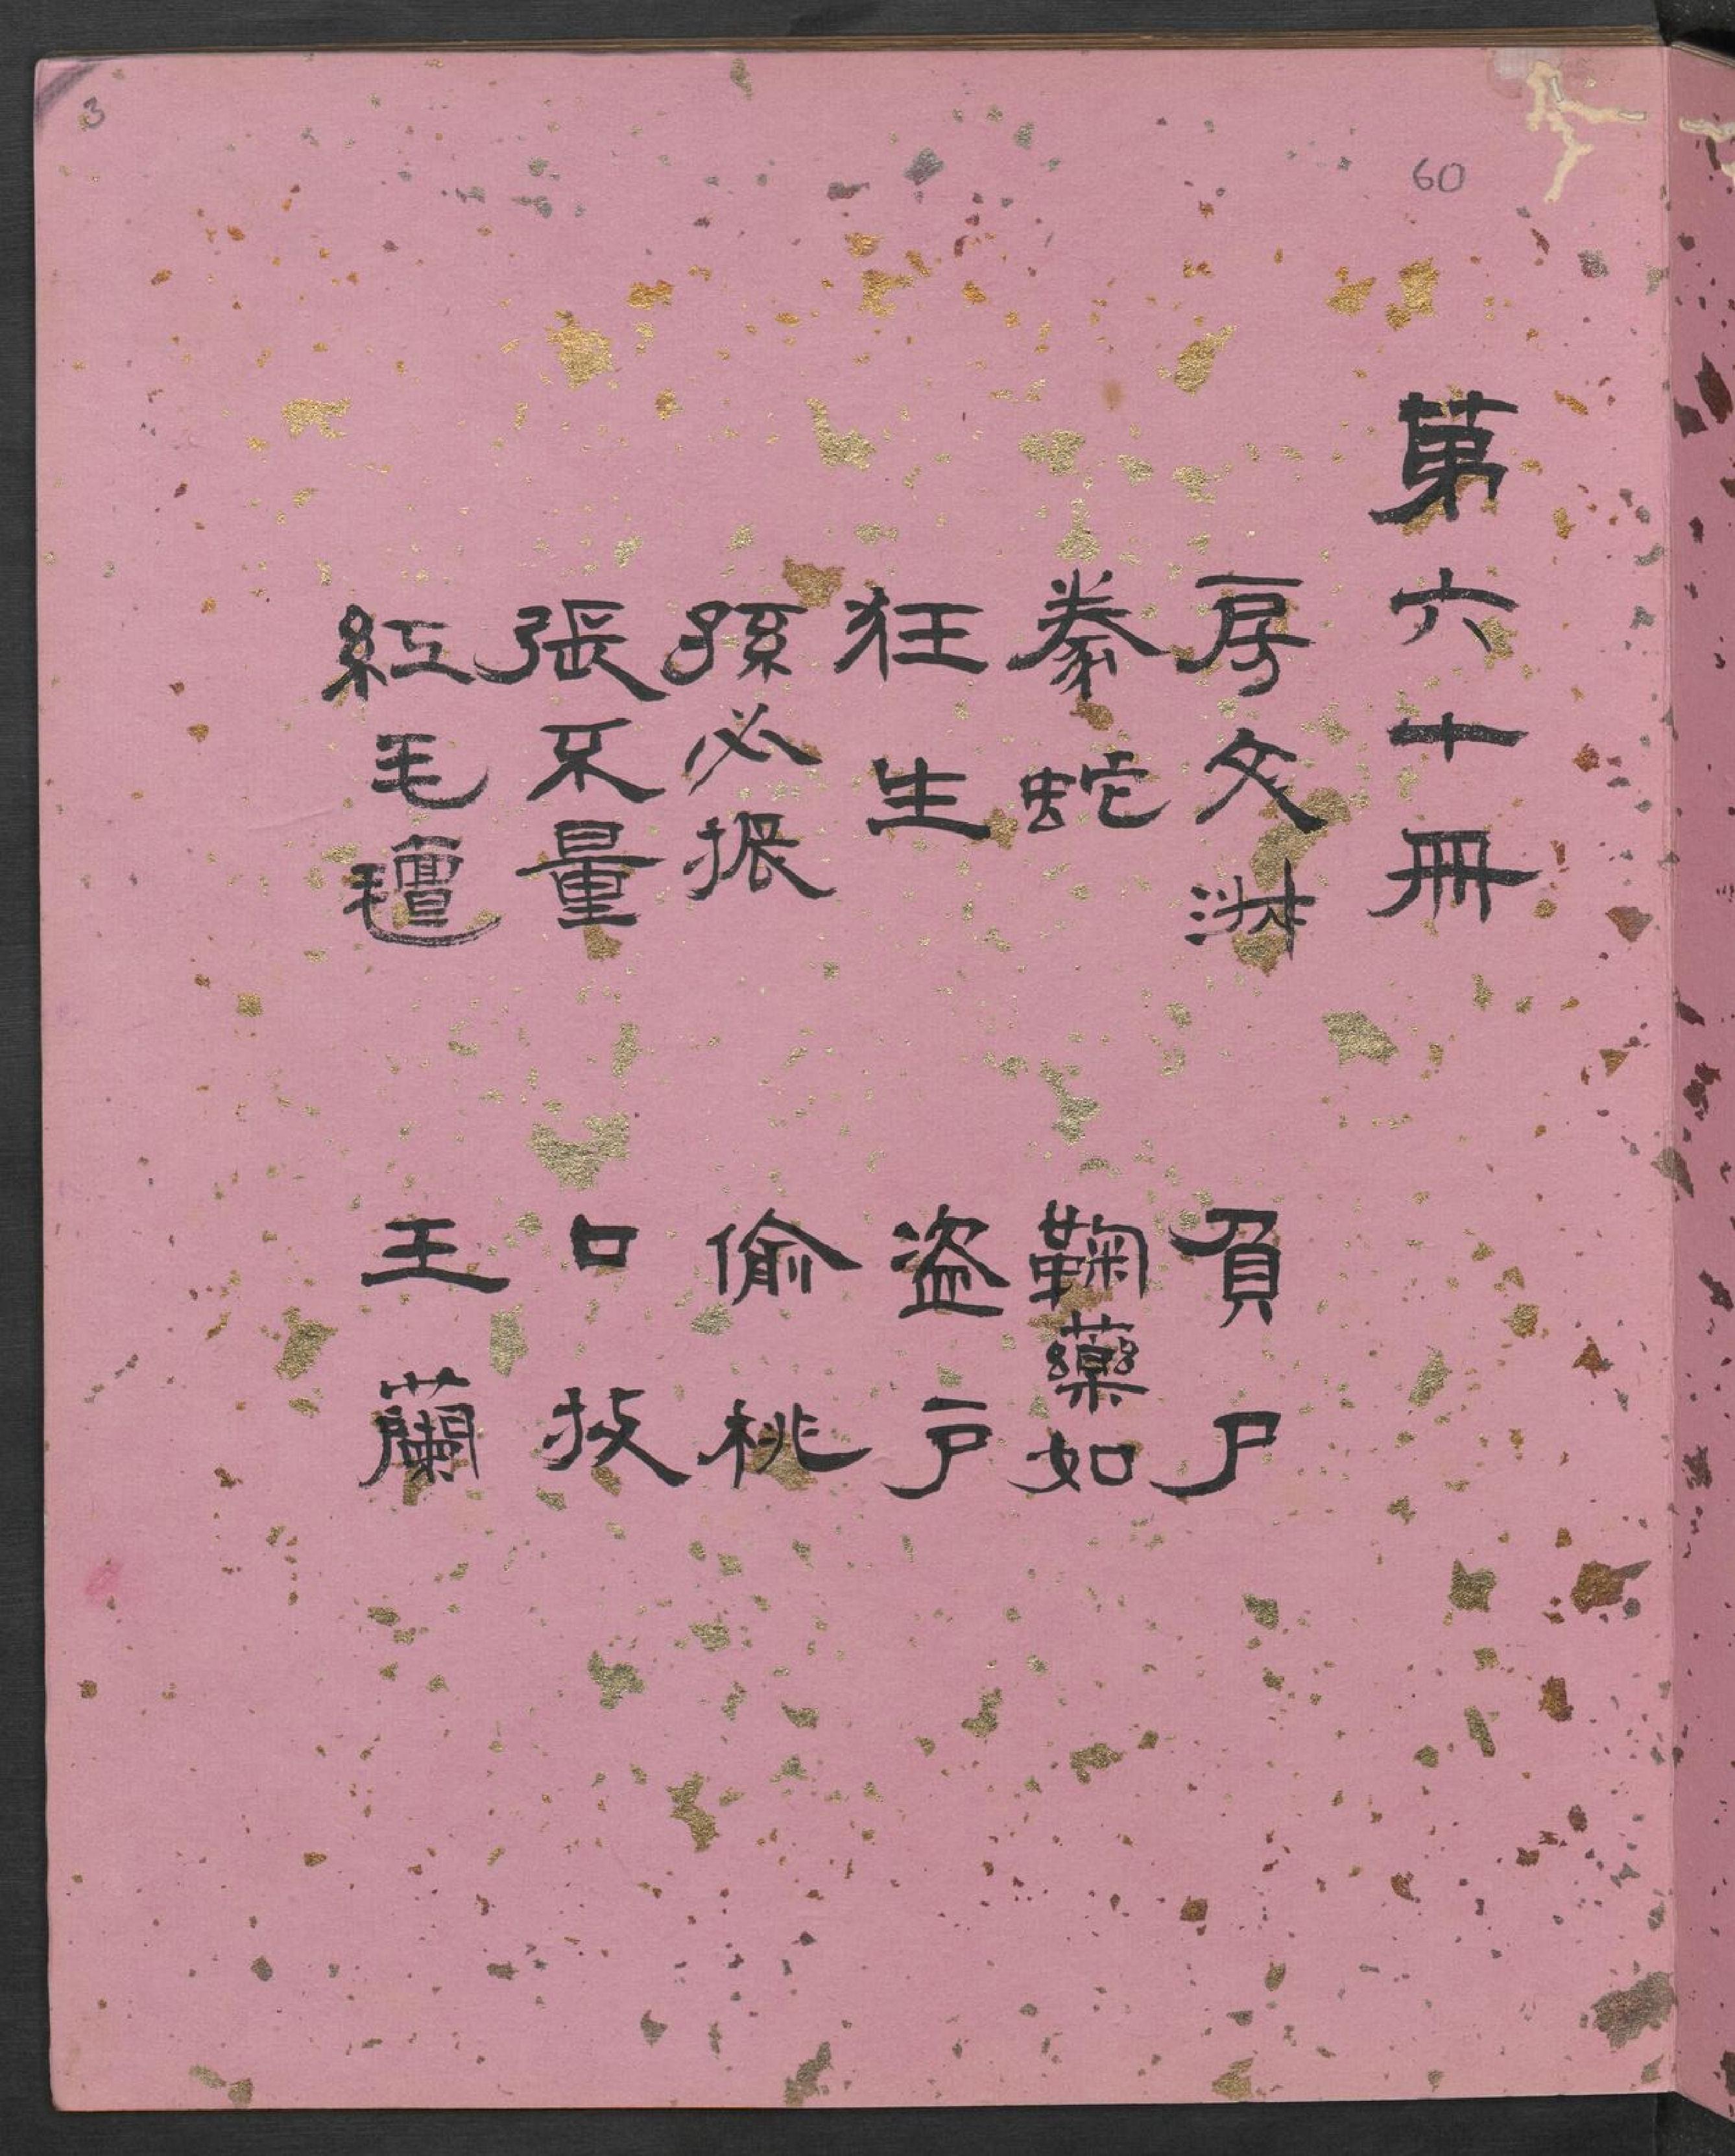 3
60
第六十冊
房文淋
負尸
豢蛇
鞠藥如
狂生
盜戶
孫必振
偷桃
張不量
口技
紅毛氊
王蘭